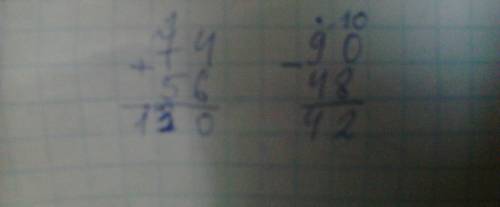 1 . 10
+ 74 - 90
56 48
130 42